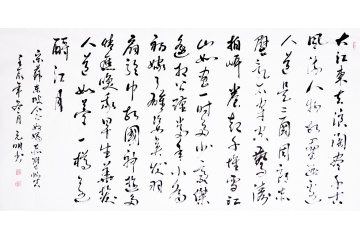 大江东去浪淘尽千古
风流人物故垒西边
人道是三国周郎赤
壁乱石穿空惊涛
拍岸卷起千堆雪江
山如画一时多少豪杰
遥想公瑾当年小乔
初嫁了雄姿英发羽
扇纶巾
故国神游
多情
早生华发
人生如梦一樽还
酹江月
宋苏东坡念奴娇赤壁怀古
年冬月元明书